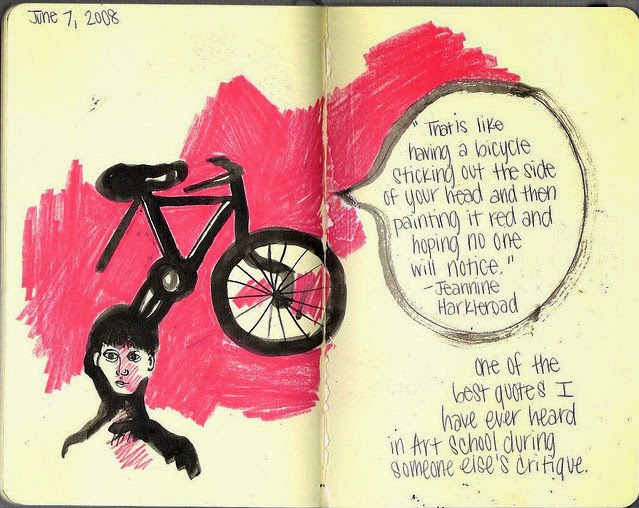 June 7, 2008
"That is like
having a bicycle
sticking out the side
of your head and then
painting it red and
hoping no one
will notice."
-Jeannine
Harkleroad
one of the
best quotes I
have ever heard
in Art School during
someone else's critique.